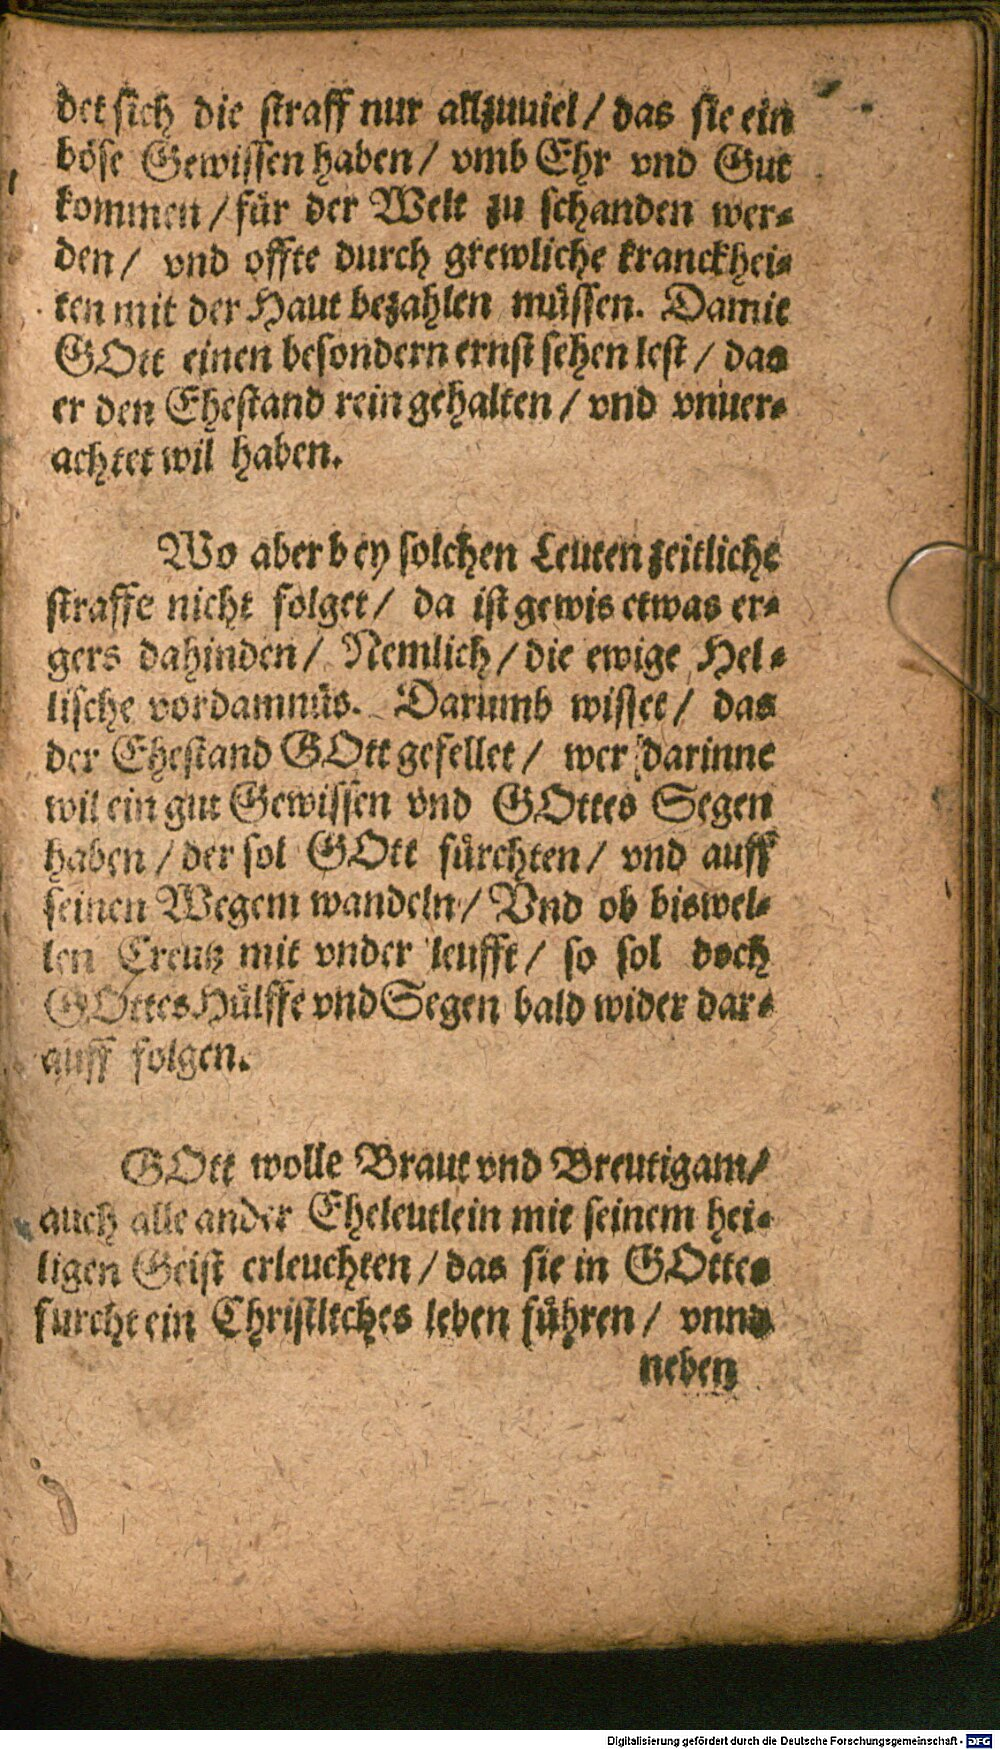 det sich die straff nur allzuuiel / das sie ein
böse Gewissen haben / vmb Ehr vnd Gut
kommen / für der Welt zu schanden wer-
den / vnd offte durch grewliche kranckhei-
ten mit der Haut bezahlen müssen. Damit
GOtt einen besondern ernst sehen lest / das
er den Ehestand rein gehalten / vnd vnuer-
achtet wil haben.
Wo aber bey solchen Leuten zeitliche
straffe nicht folget / da ist gewis etwas er-
gers dahinden / Nemlich / die ewige Hel-
lische vordamnüs. Darumb wisset / das
der Ehestand GOtt gefellet / wer darinne
wil ein gut Gewissen vnd GOttes Segen
haben / der sol GOtt fürchten / vnd auff
seinen Wegem wandeln / Vnd ob biswei-
len Creutz mit vnder leufft / so sol doch
GOttes Hülffe vnd Segen bald wider dar-
auff folgen.
GOtt wolle Braut vnd Breutigam /
auch alle ander Eheleutlein mit seinem hei-
ligen Geist erleuchten / das sie in GOttes
furcht ein Christliches leben führen / vnnd
neben
Digitalisierung gefördert durch die Deutsche Forschungsgemeinschaft - DFG